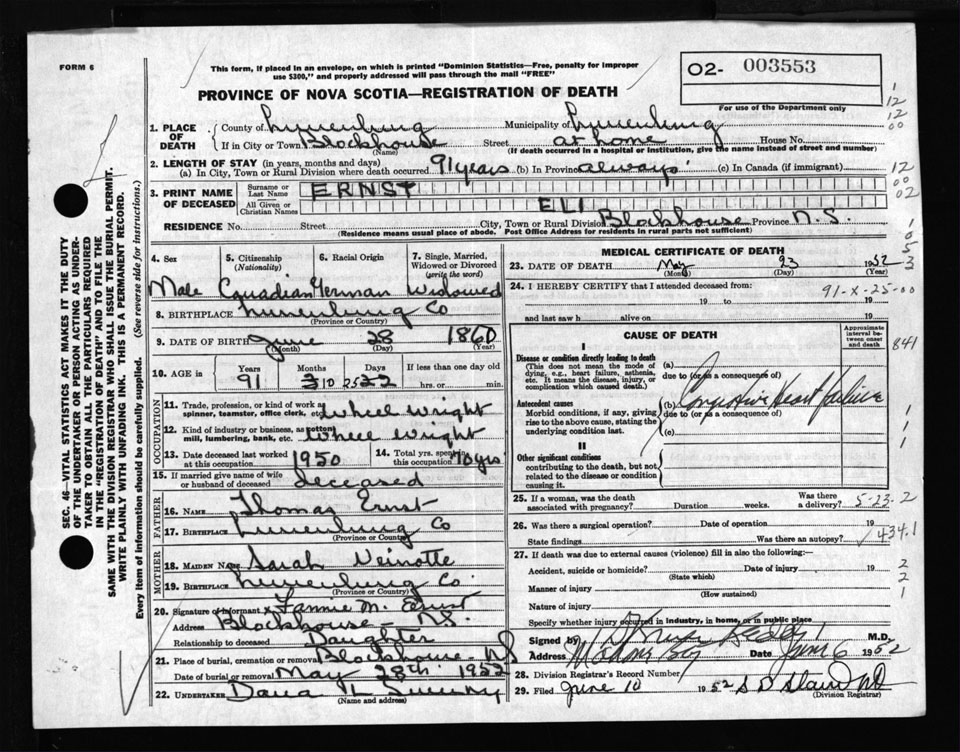 FORM 6
This form, if placed in an envelope, on which is printed "Dominion Statistics—Free, penalty for improper
use $300," and properly addressed will pass through the mail "FREE"
PROVINCE OF NOVA SCOTIA—REGISTRATION OF DEATH
O2- 003553
For use of the Department only
1. PLACE OF DEATH
County of Lunenburg Municipality of Lunenburg
If in City or Town Blockhouse Street at home House No.
(Name) (If death occurred in a hospital or institution, give the name instead of street and number)
2. LENGTH OF STAY (in years, months and days)
(a) In City, Town or Rural Division where death occurred 91 years (b) In Province always (c) In Canada (if immigrant)
3. PRINT NAME OF DECEASED
Surname or Last Name ERNST
All Given or Christian Names ELI
RESIDENCE No. Street City, Town or Rural Division Blockhouse Province N.S.
(Residence means usual place of abode. Post Office Address for residents in rural parts not sufficient)
4. Sex
Male
5. Citizenship (Nationality)
Canadian
6. Racial Origin
German
7. Single, Married, Widowed or Divorced (write the word)
Widowed
8. BIRTHPLACE Lunenburg Co
(Province or Country)
9. DATE OF BIRTH June 28 1860
(Month) (Day) (Year)
10. AGE in Years Months Days If less than one day old
91 10 25 hrs. or min.
OCCUPATION
11. Trade, profession, or kind of work as spinner, teamster, office clerk, etc. wheel wright
12. Kind of industry or business, as cotton mill, lumbering, bank, etc. wheel wright
13. Date deceased last worked at this occupation 1950
14. Total yrs. spent in this occupation 70 yrs
15. If married give name of wife or husband of deceased deceased
FATHER
16. NAME Thomas Ernst
17. BIRTHPLACE Lunenburg Co
(Province or Country)
MOTHER
18. MAIDEN NAME Sarah Veinotte
19. BIRTHPLACE Lunenburg Co.
(Province or Country)
20. Signature of informant x Fannie M. Ernst
Address Blockhouse - N.S.
Relationship to deceased Daughter
21. Place of burial, cremation or removal Blockhouse - NS
Date of burial or removal May 28th 1952
22. UNDERTAKER Dana L Sweeny
(Name and address)
MEDICAL CERTIFICATE OF DEATH
23. DATE OF DEATH May 23 1952
(Month) (Day) (Year)
24. I HEREBY CERTIFY that I attended deceased from:
91-X-25-00
19 to 19
and last saw h alive on 19
CAUSE OF DEATH
Approximate interval between onset and death
I
Disease or condition directly leading to death
(This does not mean the mode of dying, e.g., heart failure, asthenia, etc. It means the disease, injury, or complication which caused death.)
(a)
due to (or as a consequence of)
Antecedent causes
Morbid conditions, if any, giving rise to the above cause, stating the underlying condition last.
(b) Congestive Heart Failure
due to (or as a consequence of)
(c)
II
Other significant conditions
contributing to the death, but not related to the disease or condition causing it.
25. If a woman, was the death associated with pregnancy? Duration weeks. Was there a delivery? 5-23-2
26. Was there a surgical operation? Date of operation 19
State findings Was there an autopsy? 434.1
27. If death was due to external causes (violence) fill in also the following:—
Accident, suicide or homicide? Date of injury 19
(State which)
Manner of injury
(How sustained)
Nature of injury
Specify whether injury occurred in industry, in home, or in public place
Signed by M.D.
Address Mahone Bay Date June 6 1952
28. Division Registrar's Record Number
29. Filed June 10 1952
(Division Registrar)
1
12
12
00
12
00
02
1
0
5
3
841
1
1
1
2
2
1
SEC. 46—VITAL STATISTICS ACT MAKES IT THE DUTY
OF THE UNDERTAKER OR PERSON ACTING AS UNDER-
TAKER TO OBTAIN ALL THE PARTICULARS REQUIRED
IN THE "REGISTRATION OF DEATH" AND TO FILE THE
SAME WITH THE DIVISION REGISTRAR WHO SHALL ISSUE THE BURIAL PERMIT.
WRITE PLAINLY WITH UNFADING INK. THIS IS A PERMANENT RECORD.
Every item of information should be carefully supplied. (See reverse side for instructions.)